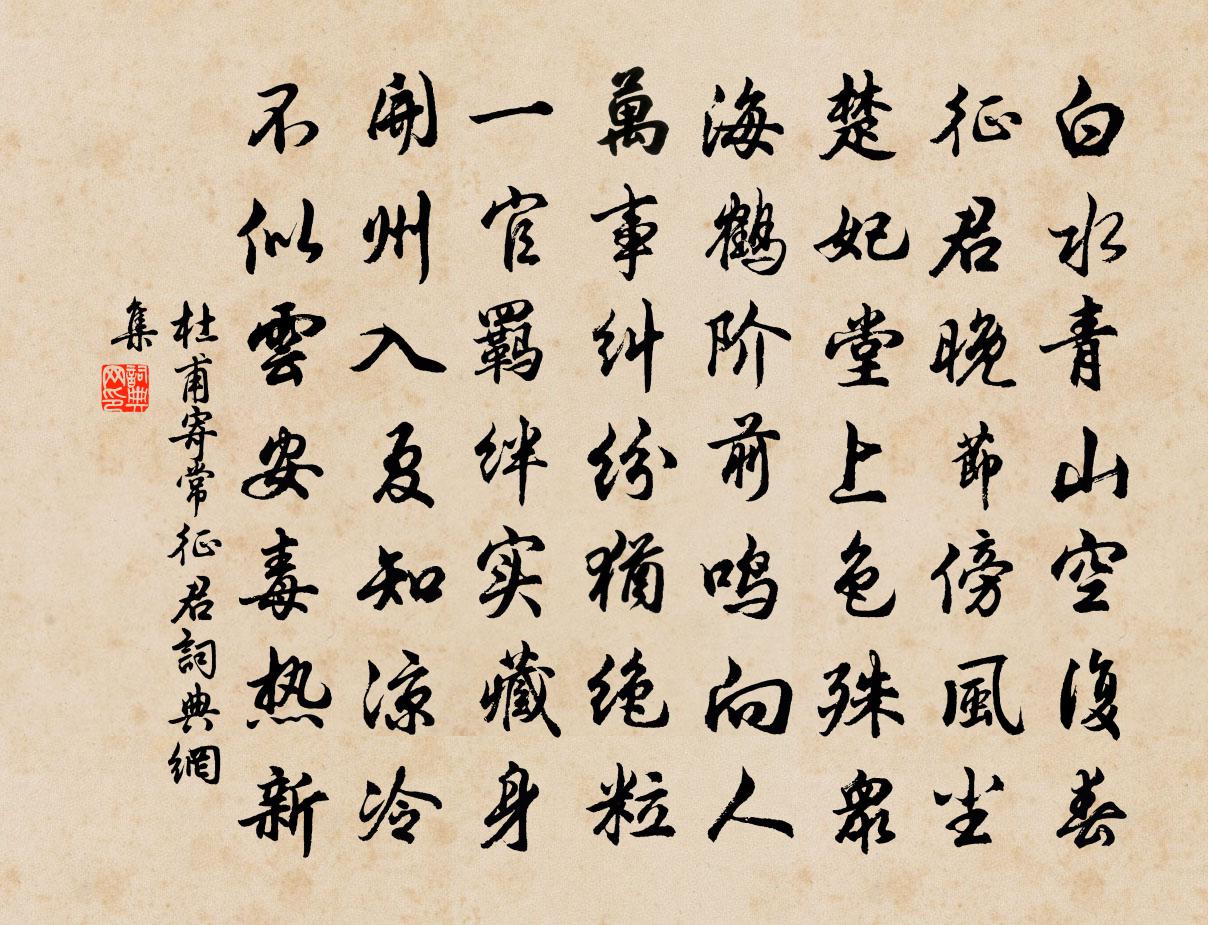 白水青山空復春
征君晚節傍風尘
楚妃堂上色殊眾
海鶴阶前鸣向人
萬事糾紛猶绝粒
一官羁绊实藏身
開州入夏知涼冷
不似雲安毒热新
杜甫寄常征君詞典網
集
詞典网印